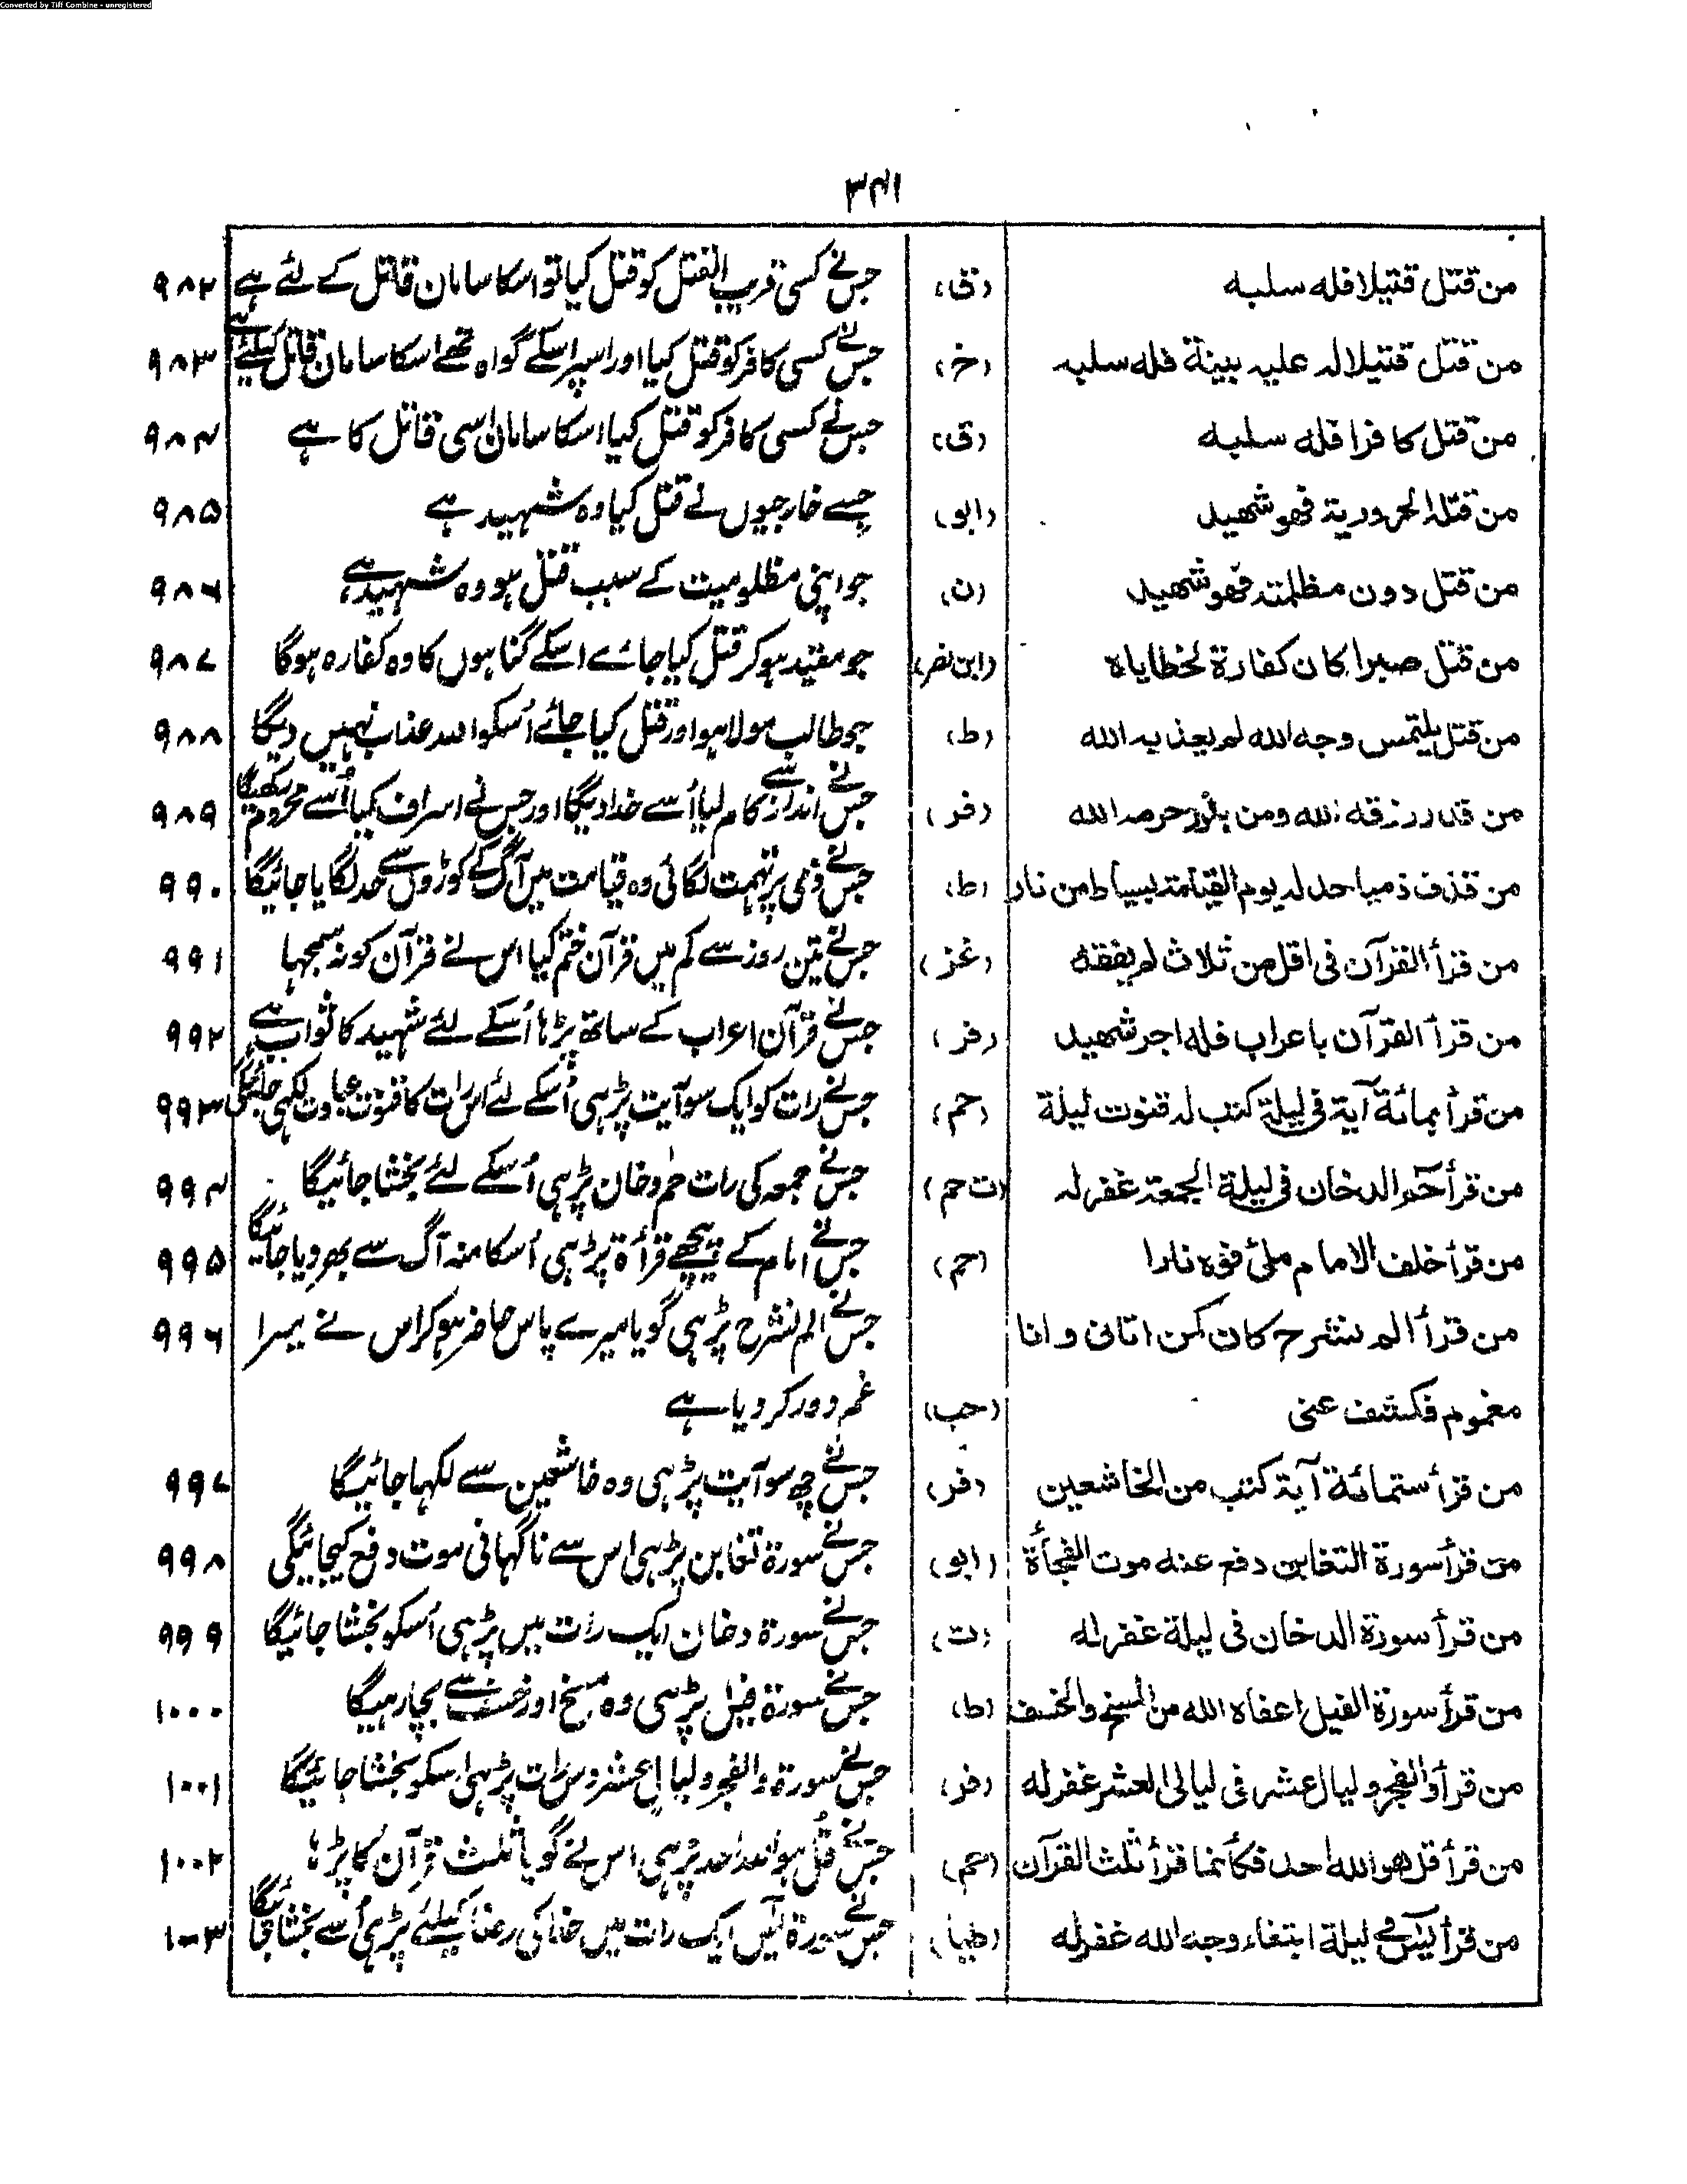 Converted by Tiff Combine - unregistered
۳۴۱
من قتل قتيلا فله سلبه (ق) جس نے کسی قریب القتل کو قتل کیا تو اسکا سامان قاتل کے لئے ہے ۹۸۲
من قتل قتيلا له عليه بينة فله سلبه (خ) جس نے کسی کافر کو قتل کیا اور اسپر اسکے گواہ تھے اسکا سامان قاتل کیلئے ہے ۹۸۳
من قتل كافرا فله سلبه (ق) جس نے کسی کافر کو قتل کیا اسکا سامان اسی قاتل کا ہے ۹۸۴
من قتله الحرورية فهو شهيد (ابو) جسے خارجیوں نے قتل کیا وہ شہید ہے ۹۸۵
من قتل دون مظلمته فهو شهيد (ن) جو اپنی مظلومیت کے سبب قتل ہو وہ شہید ہے ۹۸۶
من قتل صبرا كان كفارة لخطاياه (ابن نصر) جو مقید ہو کر قتل کیا جائے اسکے گناہوں کا وہ کفارہ ہوگا ۹۸۷
من قتل يلتمس وجه الله لم يعذبه الله (ط) جو طالب مولا ہو اور قتل کیا جائے اُسکو اللہ عذاب نہیں دیگا ۹۸۸
من قدر رزقه الله ومن بذر حرمه الله (فر) جس نے اندازے سے کام لیا اُسے خدا دیگا اور جس نے اسراف کیا اُسے محروم رکھیگا ۹۸۹
من قذف ذميا حد له يوم القيامة بسياط من نار (ط) جس نے ذمی پر تہمت لگائی وہ قیامت میں آگ کے کوڑوں سے حد لگایا جائیگا ۹۹۰
من قرأ القرآن فى اقل من ثلاث لم يفقه (غز) جس نے تین روز سے کم میں قرآن ختم کیا اس نے قرآن کو نہ سمجہا ۹۹۱
من قرأ القرآن باعراب فله اجر شهيد (فر) جس نے قرآن اعراب کے ساتھ پڑہا اُسکے لئے شہید کا ثواب ہے ۹۹۲
من قرأ بمائة آية فى ليلة كتب له قنوت ليلة (حم) جس نے رات کو ایک سو آیت پڑہی اُسکے لئے اس رات کا قنوت عبادت لکہی جائیگی ۹۹۳
من قرأ حم الدخان فى ليلة الجمعة غفر له (ت حم) جس نے جمعہ کی رات حم دخان پڑہی اُسکے لئے بخشا جائیگا ۹۹۴
من قرأ خلف الامام ملئ فوه نارا (حم) جس نے امام کے پیچھے قرأة پڑہی اُسکا منہ آگ سے بھر دیا جائیگا ۹۹۵
من قرأ الم نشرح كان كمن اتانى وانا جس نے الم نشرح پڑہی گویا میرے پاس حاضر ہو کر اس نے میرا ۹۹۶
مغموم فكشف عنى (حب) غم دور کر دیا ہے
من قرأ ستمائة آية كتب من الخاشعين (فر) جس نے چھ سو آیت پڑہی وہ خاشعین سے لکہا جائیگا ۹۹۷
من قرأ سورة التغابن دفع عنه موت الفجأة (ابو) جس نے سورة تغابن پڑہی اس سے ناگہانی موت دفع کیجائیگی ۹۹۸
من قرأ سورة الدخان فى ليلة غفر له (ت) جس نے سورة دخان ایک رات میں پڑہی اُسکو بخشا جائیگا ۹۹۹
من قرأ سورة الفيل اعفاه الله من المسخ والخسف (ط) جس نے سورة فیل پڑہی وہ مسخ اور خسف سے بچا رہیگا ۱۰۰۰
من قرأ والفجر وليال عشر فى ليالى العشر غفر له (فر) جس نے سورة والفجر و لیال عشر دس رات پڑہی اسکو بخشا جائیگا ۱۰۰۱
من قرأ قل هو الله احد فكأنما قرأ ثلث القرآن (حم) جس نے قل ہو اللہ احد پڑہی اس نے گویا ثلث قرآن کا پڑہا ۱۰۰۲
من قرأ يس فى ليلة ابتغاء وجه الله غفر له (طيا) جس نے سورة یس ایک رات میں خدا کی رضا کیلئے پڑہی اُسے بخشا جائیگا ۱۰۰۳